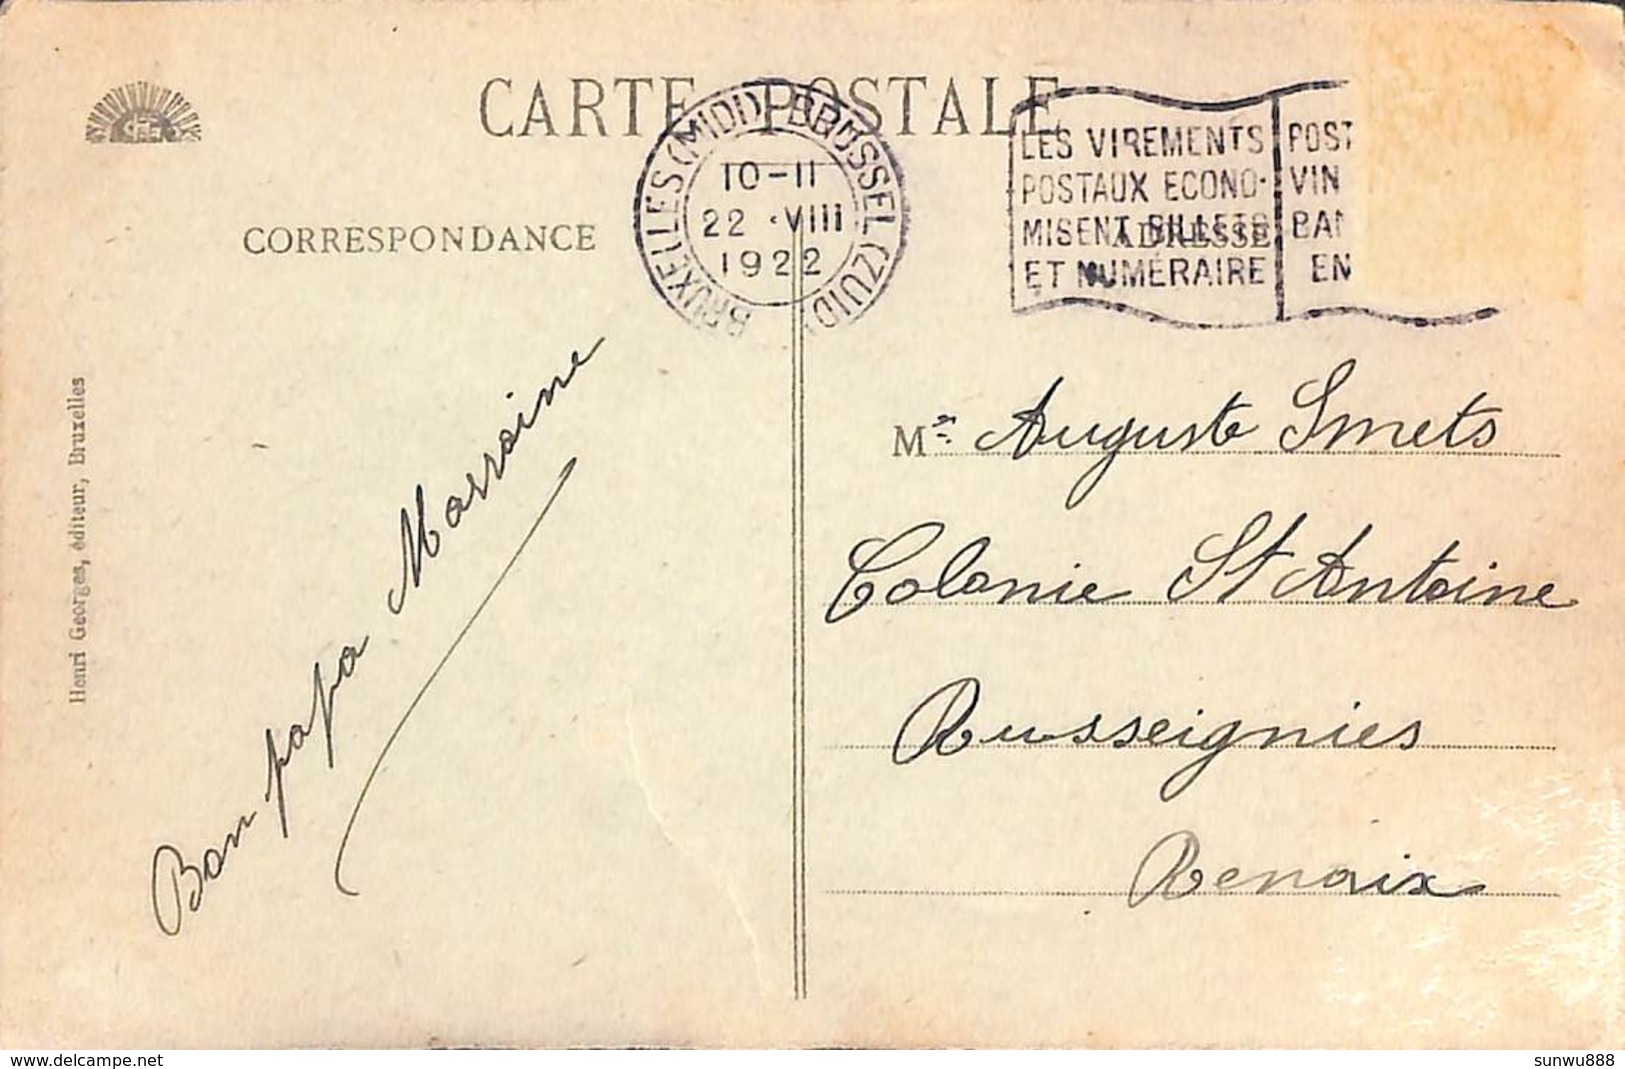 CARTE POSTALE
BRUXELLES (MIDI) BRUSSEL (ZUID)
10-11
22 VIII
1922
LES VIREMENTS
POSTAUX ECONO-
MISENT BILLETS
ET NUMÉRAIRE
POST
VIN
BAN
EN
CORRESPONDANCE
ADRESSE
Henri Georges, éditeur, Bruxelles
Bon papa Marraine
Mr Auguste Smets
Colonie St Antoine
Russeignies
Renaix
delcampe.net
sunwu888